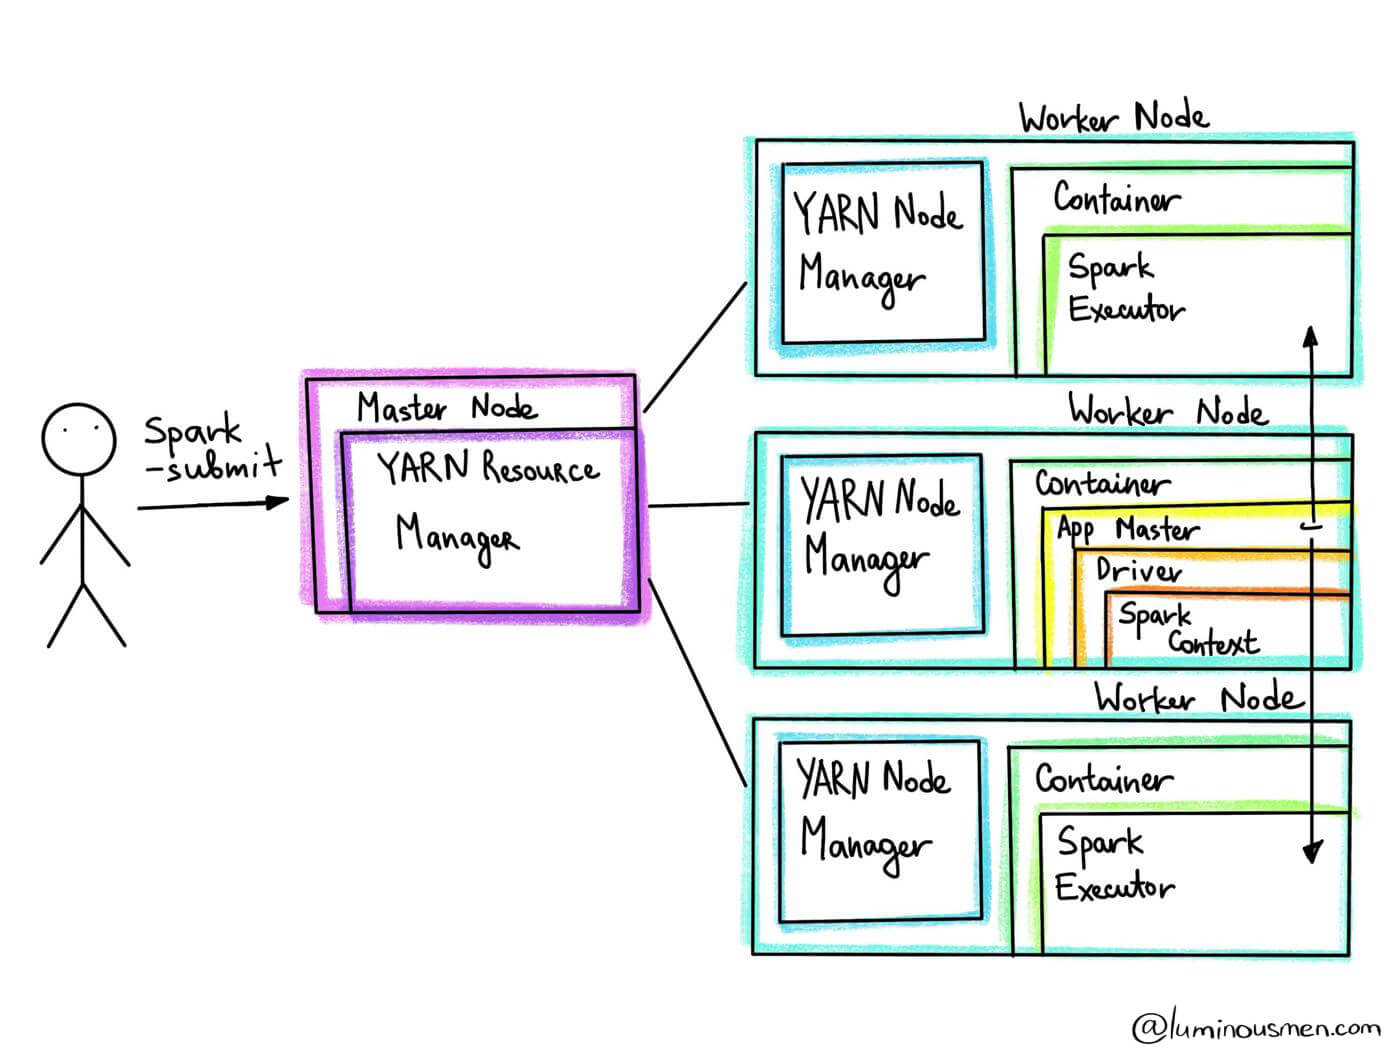 Spark
-submit
Master Node
YARN Resource
Manager
Worker Node
YARN Node
Manager
Container
Spark
Executor
Worker Node
YARN Node
Manager
Container
App Master
Driver
Spark
Context
Worker Node
YARN Node
Manager
Container
Spark
Executor
@luminousmen.com